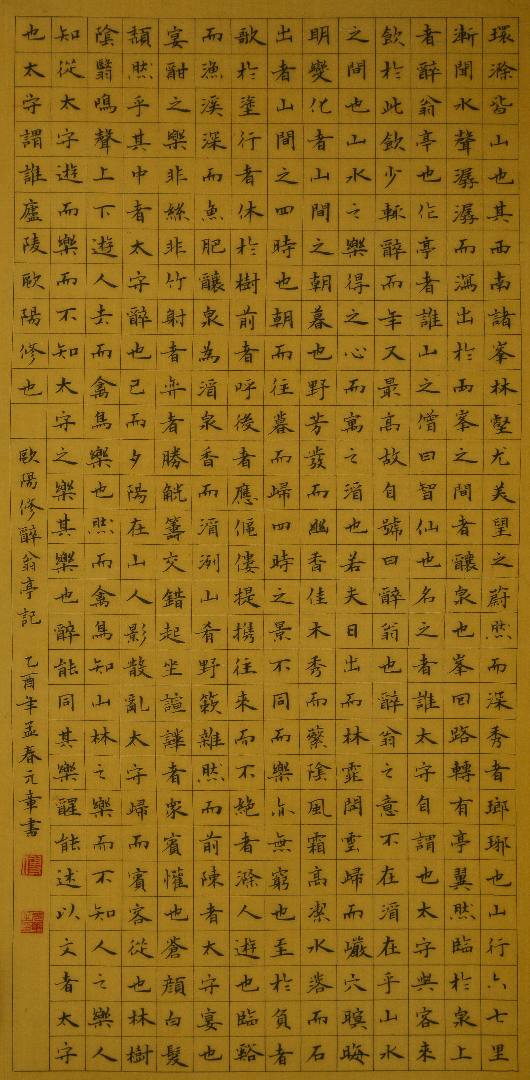 環滁皆山也其西南諸峯林壑尤美望之蔚然而深秀者瑯琊也山行六七里
漸聞水聲潺潺而瀉出於兩峯之間者釀泉也峯回路轉有亭翼然臨於泉上
者醉翁亭也作亭者誰山之僧曰智仙也名之者誰太守自謂也太守與客來
飲於此飲少輒醉而年又最高故自號曰醉翁也醉翁之意不在酒在乎山水
之間也山水之樂得之心而寓之酒也若夫日出而林霏開雲歸而巖穴暝晦
明變化者山間之朝暮也野芳發而幽香佳木秀而繁陰風霜高潔水落而石
出者山間之四時也朝而往暮而歸四時之景不同而樂亦無窮也至於負者
歌於塗行者休於樹前者呼後者應傴僂提攜往來而不絕者滁人遊也臨谿
而漁溪深而魚肥釀泉為酒泉香而酒洌山肴野蔌雜然而前陳者太守宴也
宴酣之樂非絲非竹射者弈者勝觥籌交錯起坐諠譁者眾賓懽也蒼顏白髮
頹然乎其中者太守醉也已而夕陽在山人影散亂太守歸而賓客從也林樹
陰翳鳴聲上下遊人去而禽鳥樂也然而禽鳥知山林之樂而不知人之樂人
知從太守遊而樂而不知太守之樂其樂也醉能同其樂醒能述以文者太守
也太守謂誰廬陵歐陽修也
歐陽修醉翁亭記 乙酉年孟春元章書